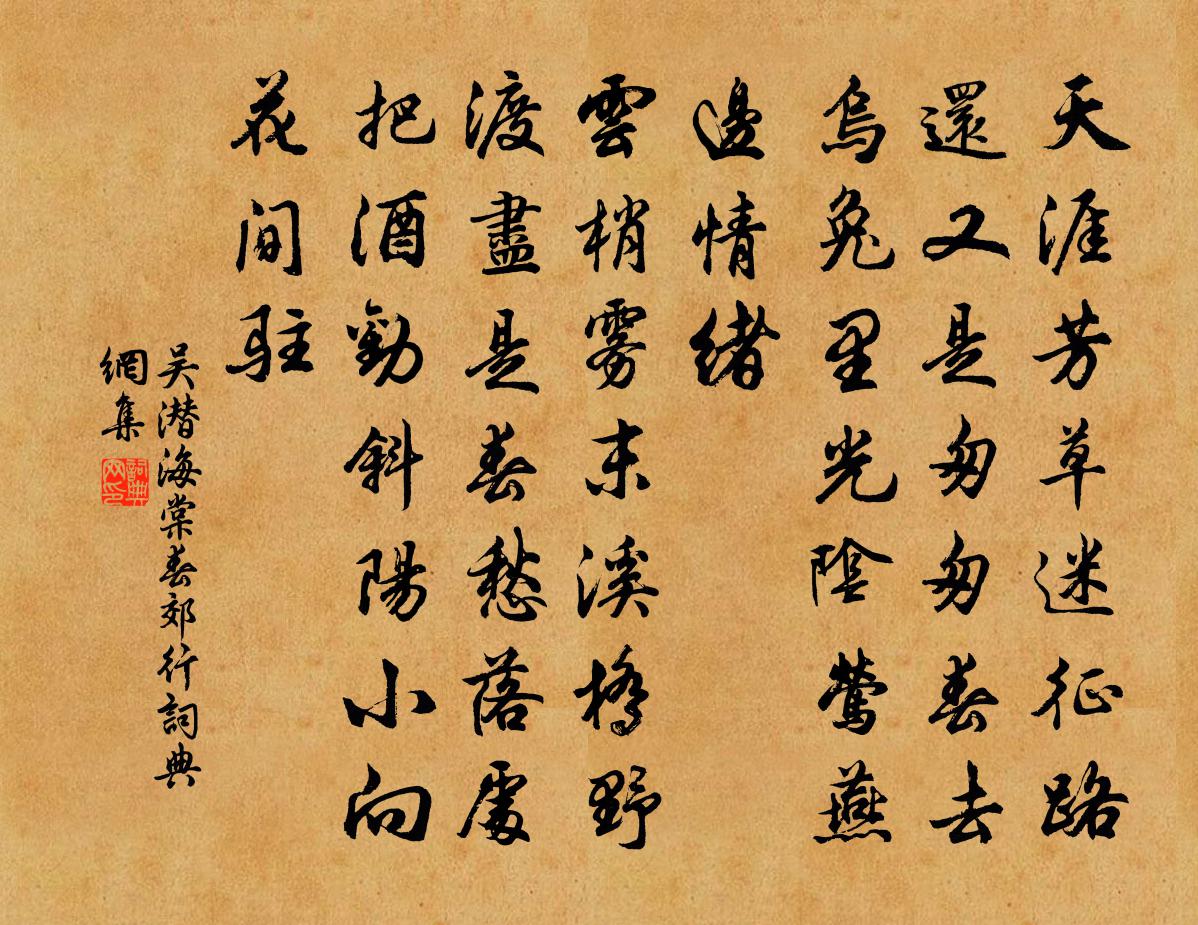 天涯芳草迷征路
還又是匆匆春去
烏兔里光陰鶯燕
邊情緒
雲梢雾末溪橋野
渡盡是春愁落處
把酒勸斜陽小向
花間駐
吴潜海棠春郊行詞典
網集
詞典
网印